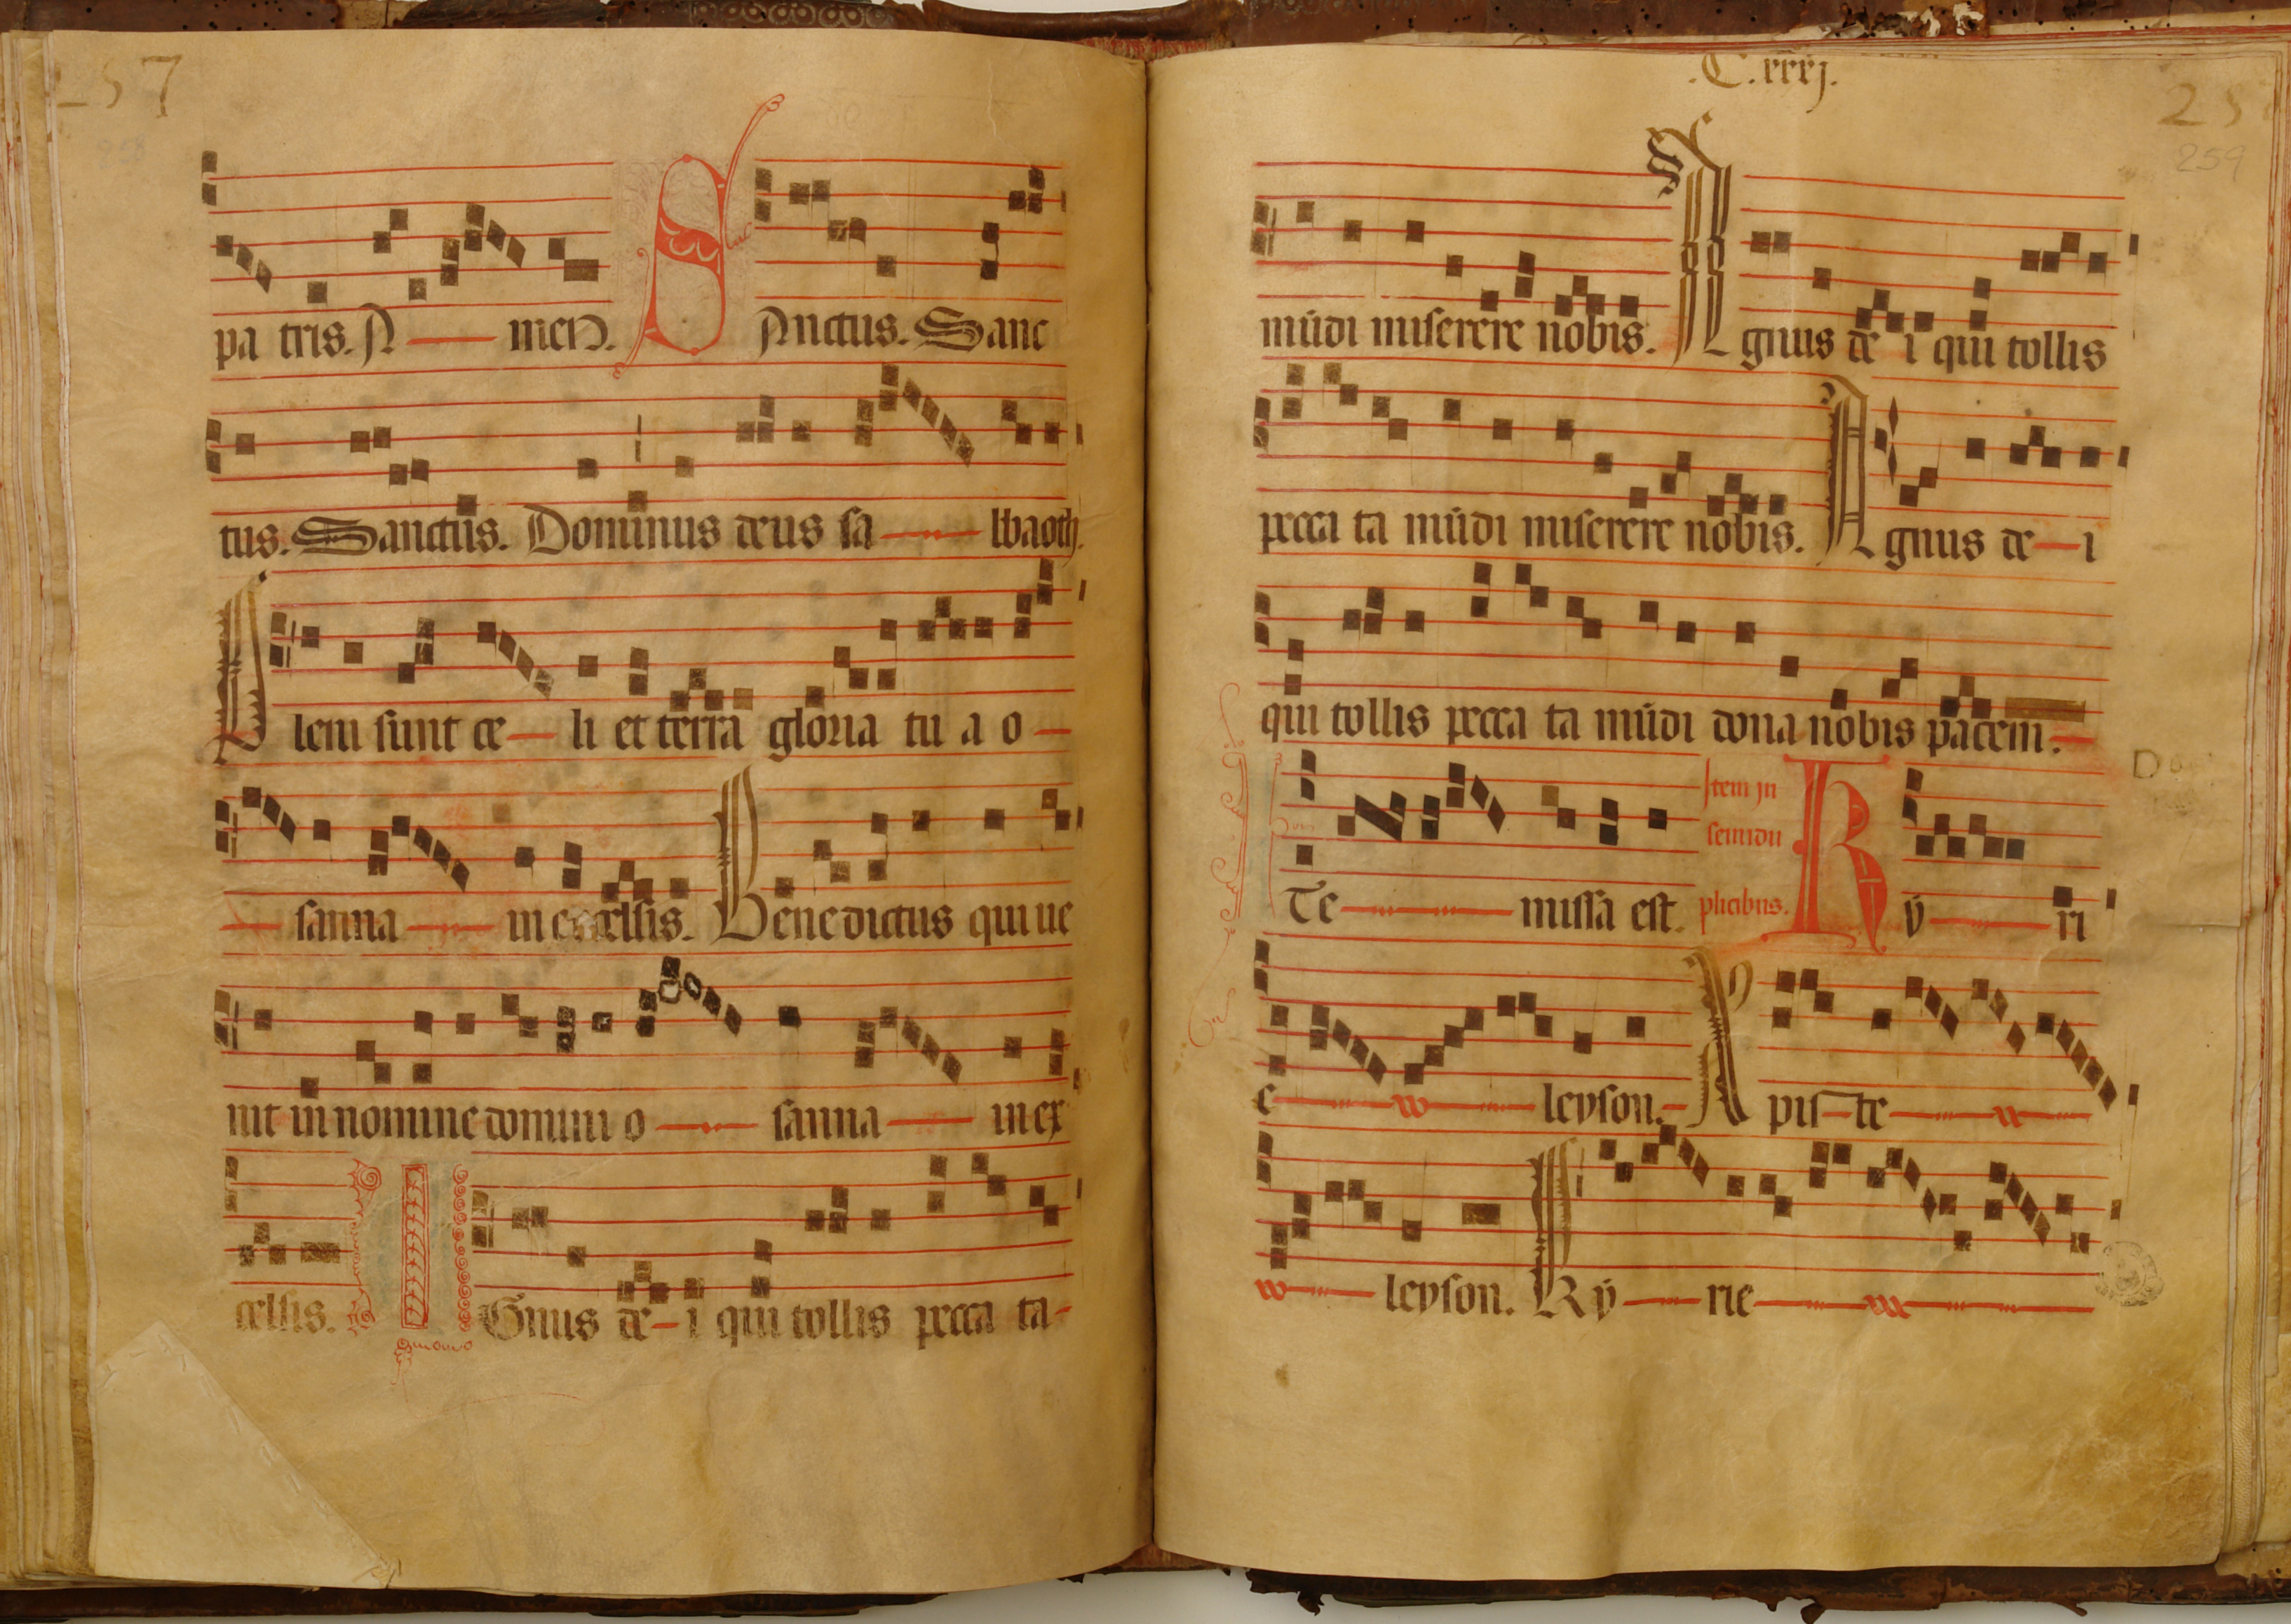 257
pa tris. A men. S Anctus. Sanc
tus. Sanctus. Dominus deus sa bbaoth.
Pleni sunt ce li et terra gloria tu a o
sanna in excelsis. Benedictus qui ue
nit in nomine domini o sanna in ex
celsis. A Gnus de i qui tollis pecca ta
.C.xxxj.
25
259
mūdi miserere nobis. Agnus de i qui tollis
pecca ta mūdi miserere nobis. Agnus de i
qui tollis pecca ta mūdi dona nobis pacem.
Do
I Te missa est. Item jn semidu plicibus. K ÿ ri
e leyson. Xpis te
leyson. Kÿ rie